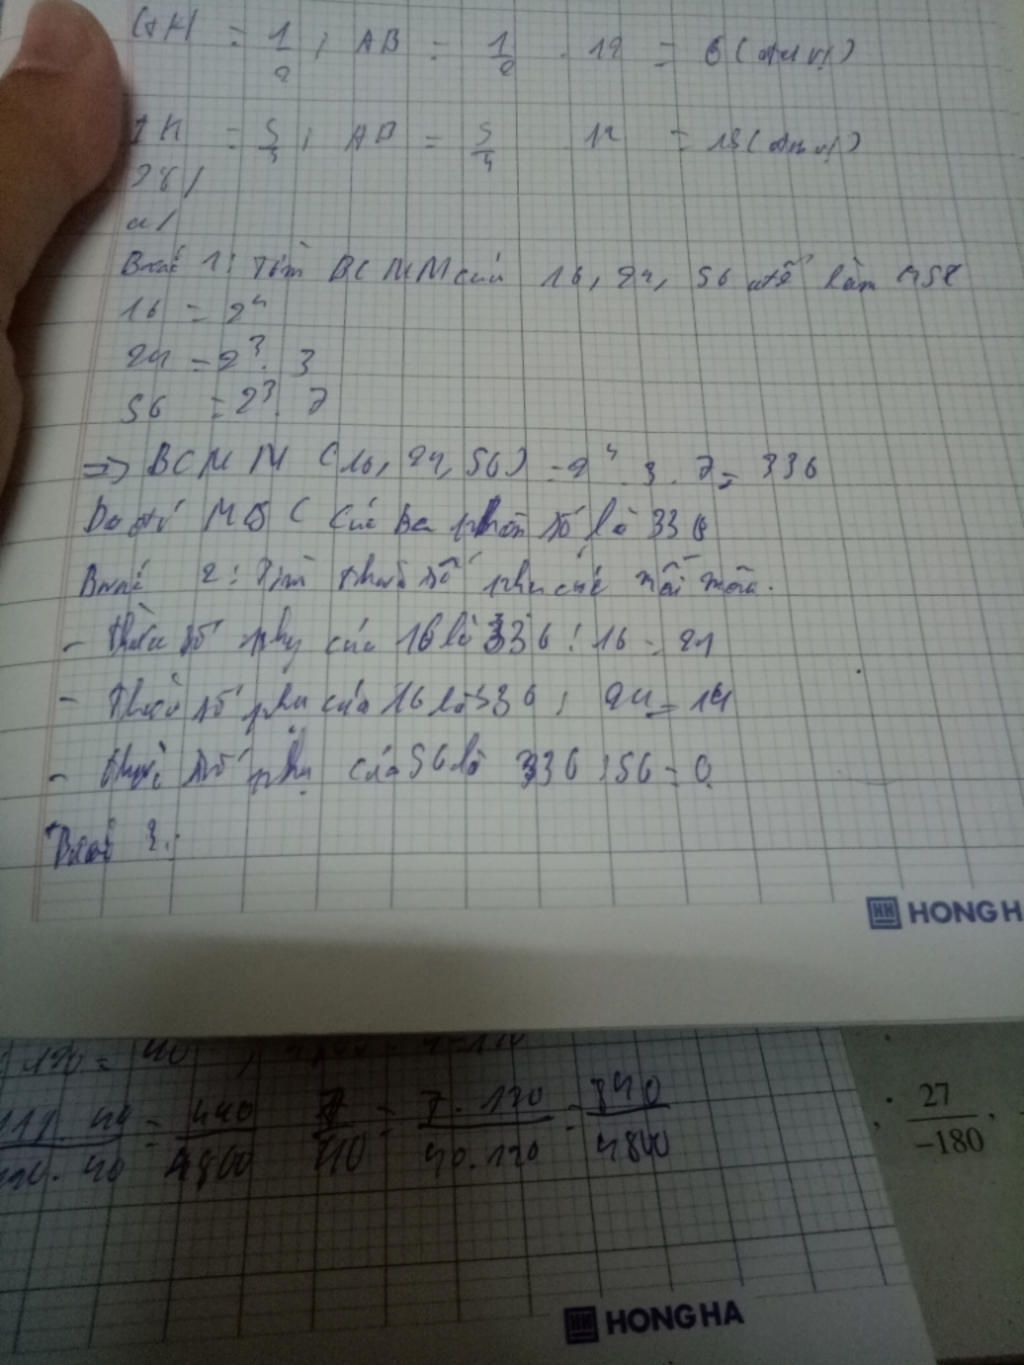 GH = 1/2 ; AB = 1/2 . 12 = 6 (đơn vị)
IK = 5/4 ; AB = 5/4 12 = 15 (đơn vị)
28/
a/
Bước 1: Tìm BCNN của 16, 24, 56 để làm MSC
16 = 2^4
24 = 2^3 . 3
56 = 2^3 . 7
=> BCNN (16, 24, 56) = 2^4 . 3 . 7 = 336
Do đó MSC của ba phân số là 336
Bước 2: Tìm thừa số phụ của mỗi mẫu.
- Thừa số phụ của 16 là 336 : 16 = 21
- Thừa số phụ của 16 là 336 : 24 = 14
- Thừa số phụ của 56 là 336 : 56 = 6
Bước 3:
HONG H
120 = 40
111. 40 = 440/4800 7/40 = 7.120/40.120 = 840/4800
27/-180
HONG HA